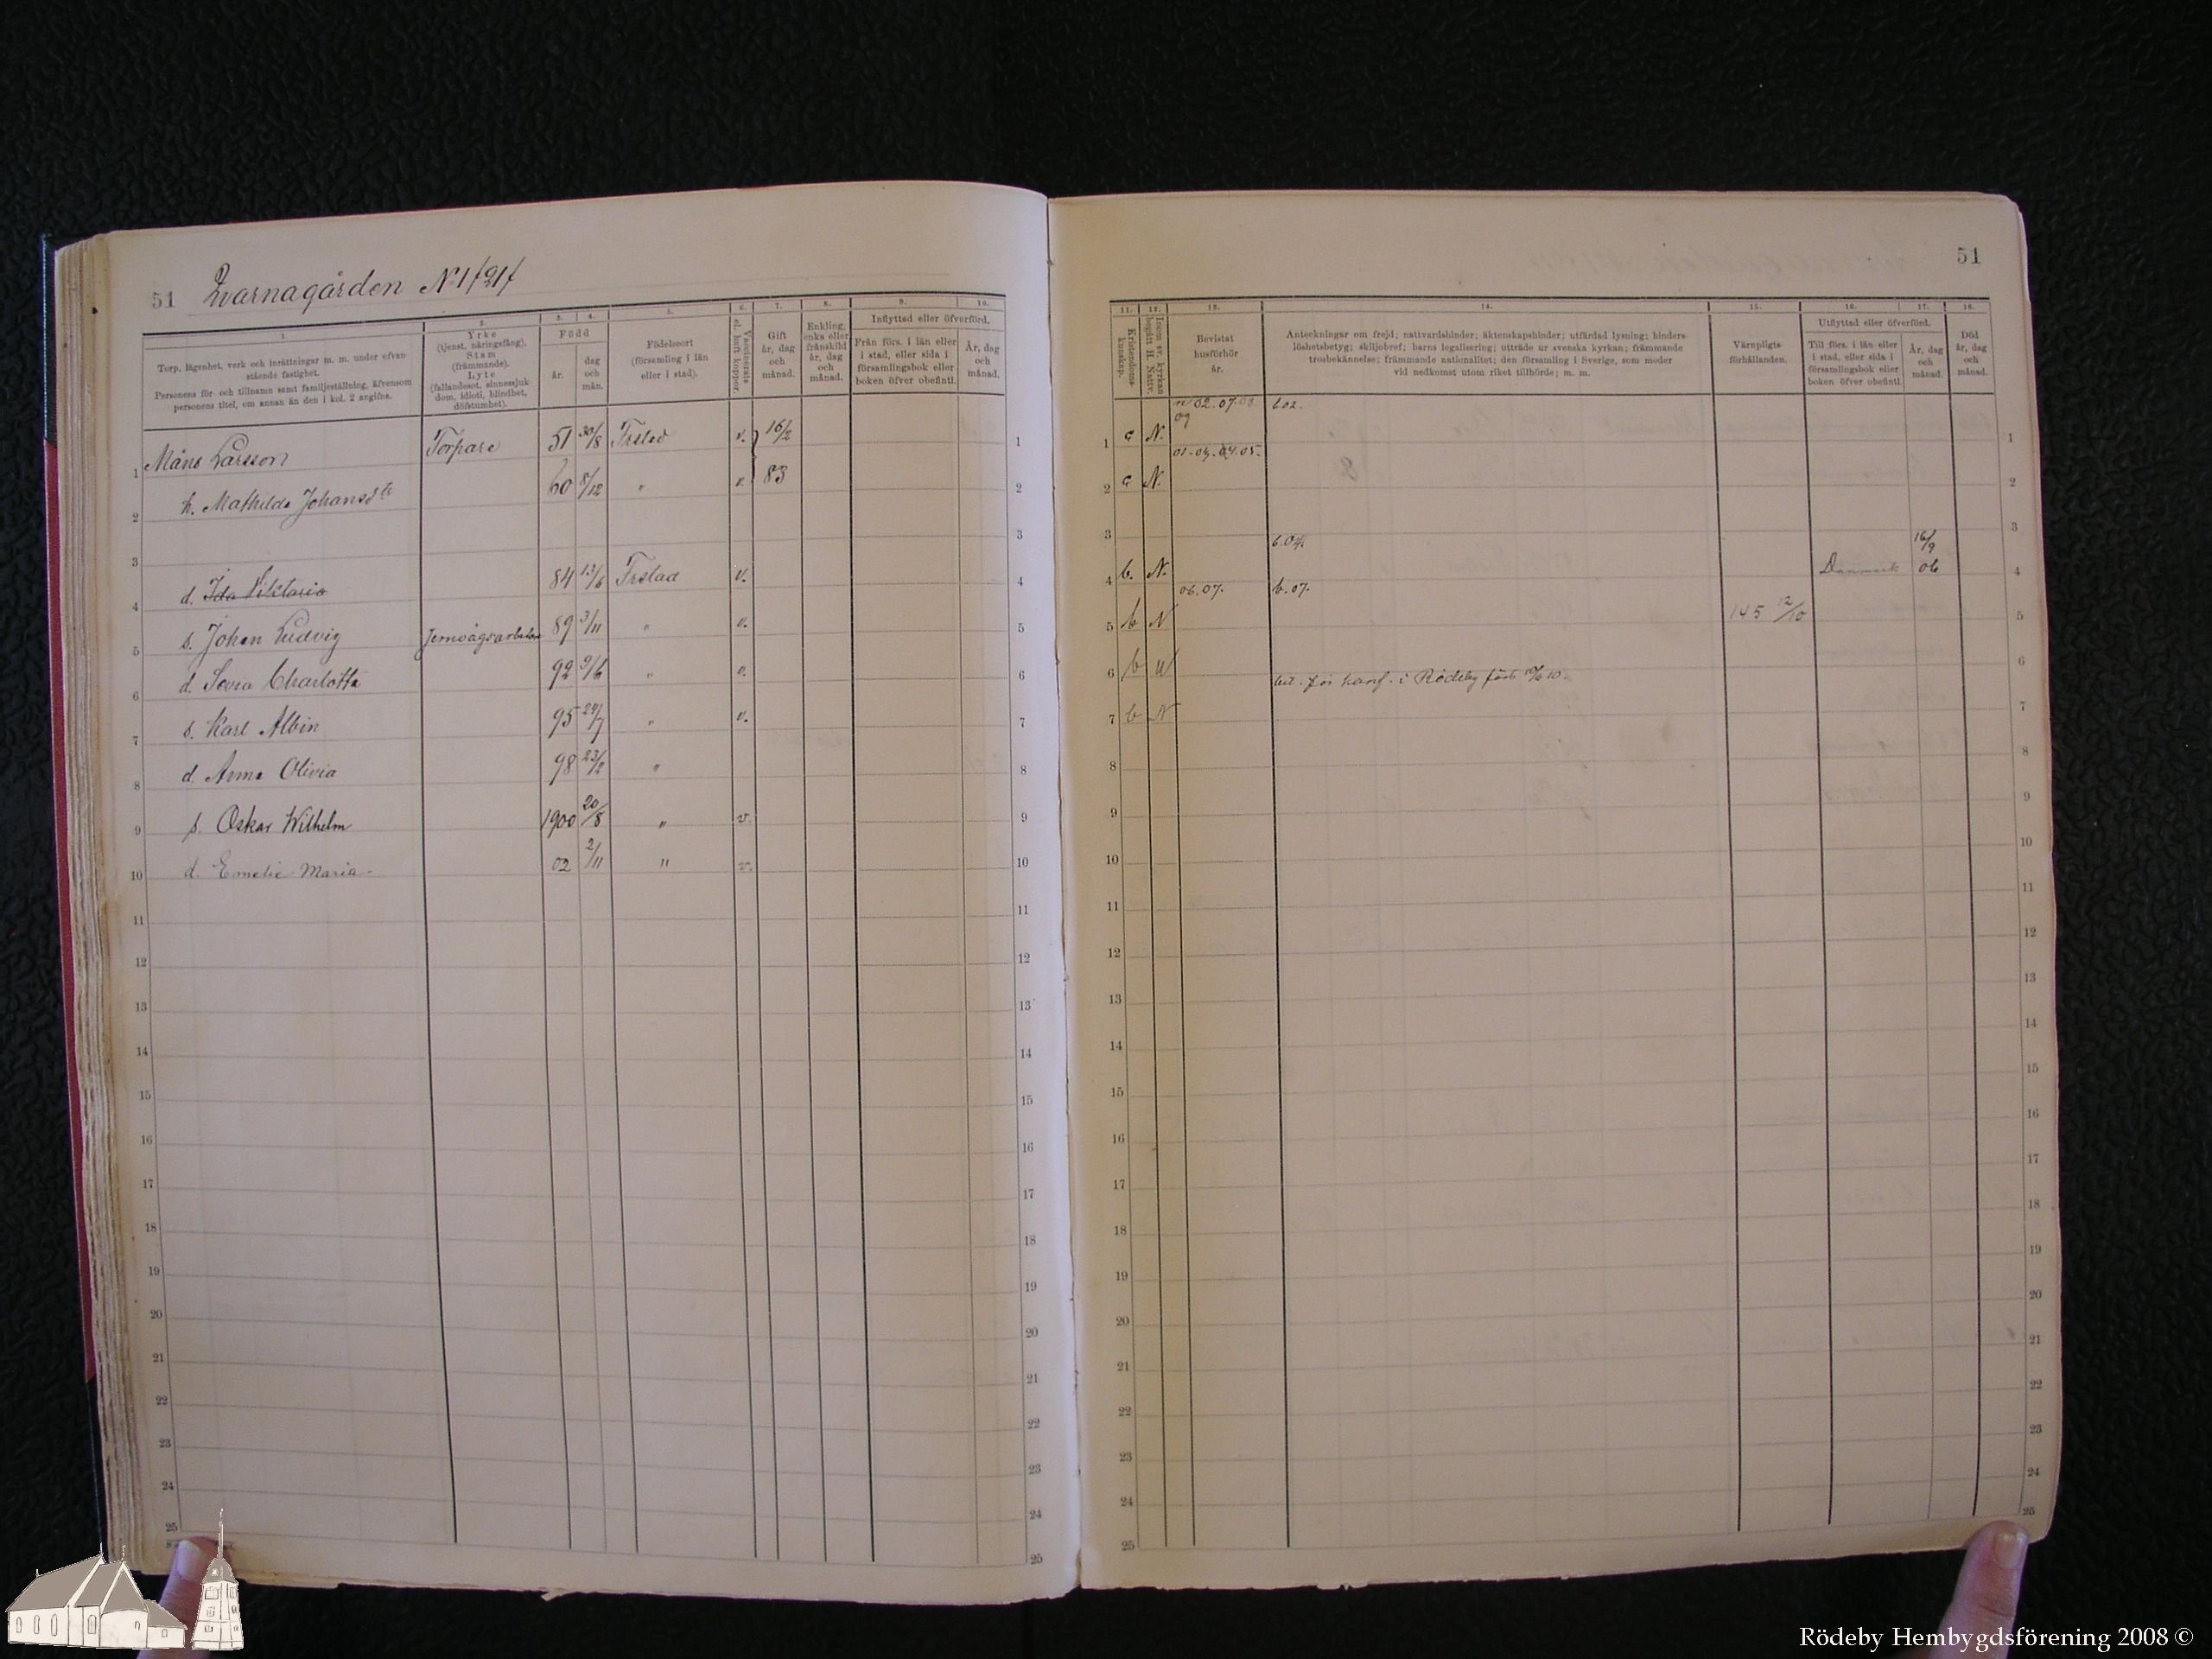 51 Qvarnagården N:1
1. 2. 3. 4. 5. 6. 7. 8. 9. 10.
Torp, lägenhet, verk och inrättningar m. m. under ofvan-
stående fastighet.
Personens för och tillnamn samt familjeställning, äfvensom
personens titel, om annan än den i kol. 2 angifna.
Yrke
(tjenst, näringsfång).
Stam
(främmande).
Lyte
(fallandesot, sinnessjuk-
dom, idioti, blindhet,
döfstumhet).
Född
år.
dag
och
mån.
Födelseort
(församling i län
eller i stad).
Vaccinerats
el. haft koppor.
Gift
år, dag
och
månad.
Enkling,
enka eller
frånskild
år, dag
och
månad.
Inflyttad eller öfverförd.
Från förs. i län eller
i stad, eller sida i
församlingsbok eller
boken öfver obefintl.
År, dag
och
månad.
1 Måns Larsson Torpare 51 30/8 Frstad v. 16/2 1
2 h. Mathilda Johansdtr 60 8/12 " v. 83 2
3 3
4 d. Ida Viktoria 84 13/6 Frstad v. 4
5 s. Johan Ludvig Jernvägsarbetare 89 3/11 " v. 5
6 d. Sevia Charlotta 92 9/6 " v. 6
7 s. Karl Albin 95 24/7 " v. 7
8 d. Anna Olivia 98 23/2 " 8
9 s. Oskar Wilhelm 1900 20/8 " v. 9
10 d. Emelie Maria 02 2/11 " v. 10
11 11
12 12
13 13
14 14
15 15
16 16
17 17
18 18
19 19
20 20
21 21
22 22
23 23
24 24
25 25
51
11. 12. 13. 14. 15. 16. 17. 18.
Kristendoms-
kunskap.
Inom sv. kyrkan
begått H. Nattv.
Bevistat
husförhör
år.
Anteckningar om frejd; nattvardshinder; äktenskapshinder; utfärdad lysning; hinders-
löshetsbetyg; skiljobref; barns legalisering; utträde ur svenska kyrkan; främmande
trosbekännelse; främmande nationalitet; den församling i Sverige, som moder
vid nedkomst utom riket tillhörde; m. m.
Värnpligts-
förhållanden.
Utflyttad eller öfverförd.
Till förs. i län eller
i stad, eller sida i
församlingsbok eller
boken öfver obefintl.
År, dag
och
månad.
Död
år, dag
och
månad.
02.07.08 b02.
09
1 c N. 1
01.03.04.05.
2 c N. 2
3 b.04. 16/9 3
4 b. N. Danmark 06 4
06.07. b.07.
5 b N 145 12/10 5
6 b N bet. för konf. i Rödeby förs 10/6 10. 6
7 b N 7
8 8
9 9
10 10
11 11
12 12
13 13
14 14
15 15
16 16
17 17
18 18
19 19
20 20
21 21
22 22
23 23
24 24
25 25
Rödeby Hembygdsförening 2008 ©